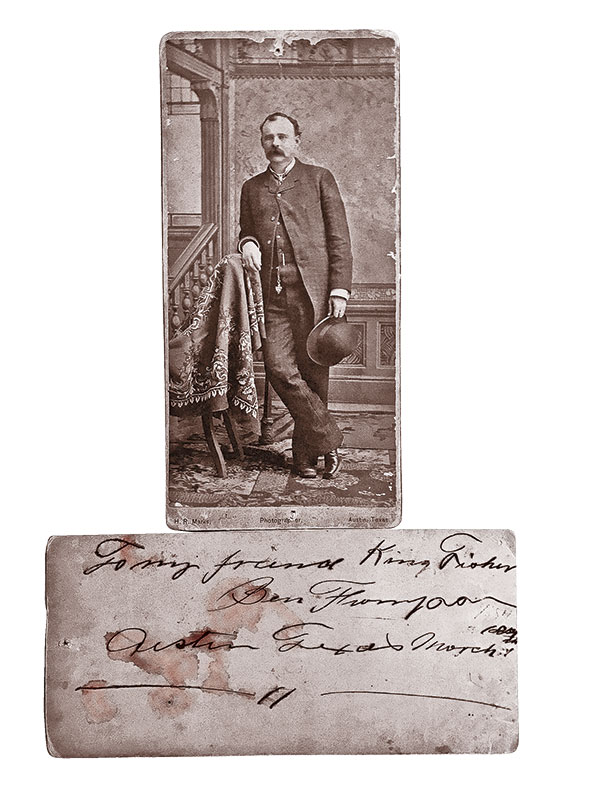 H. R. Marks, Photographer, Austin, Texas.
To my friend King Fisher
Ben Thompson
Austin Texas March
11